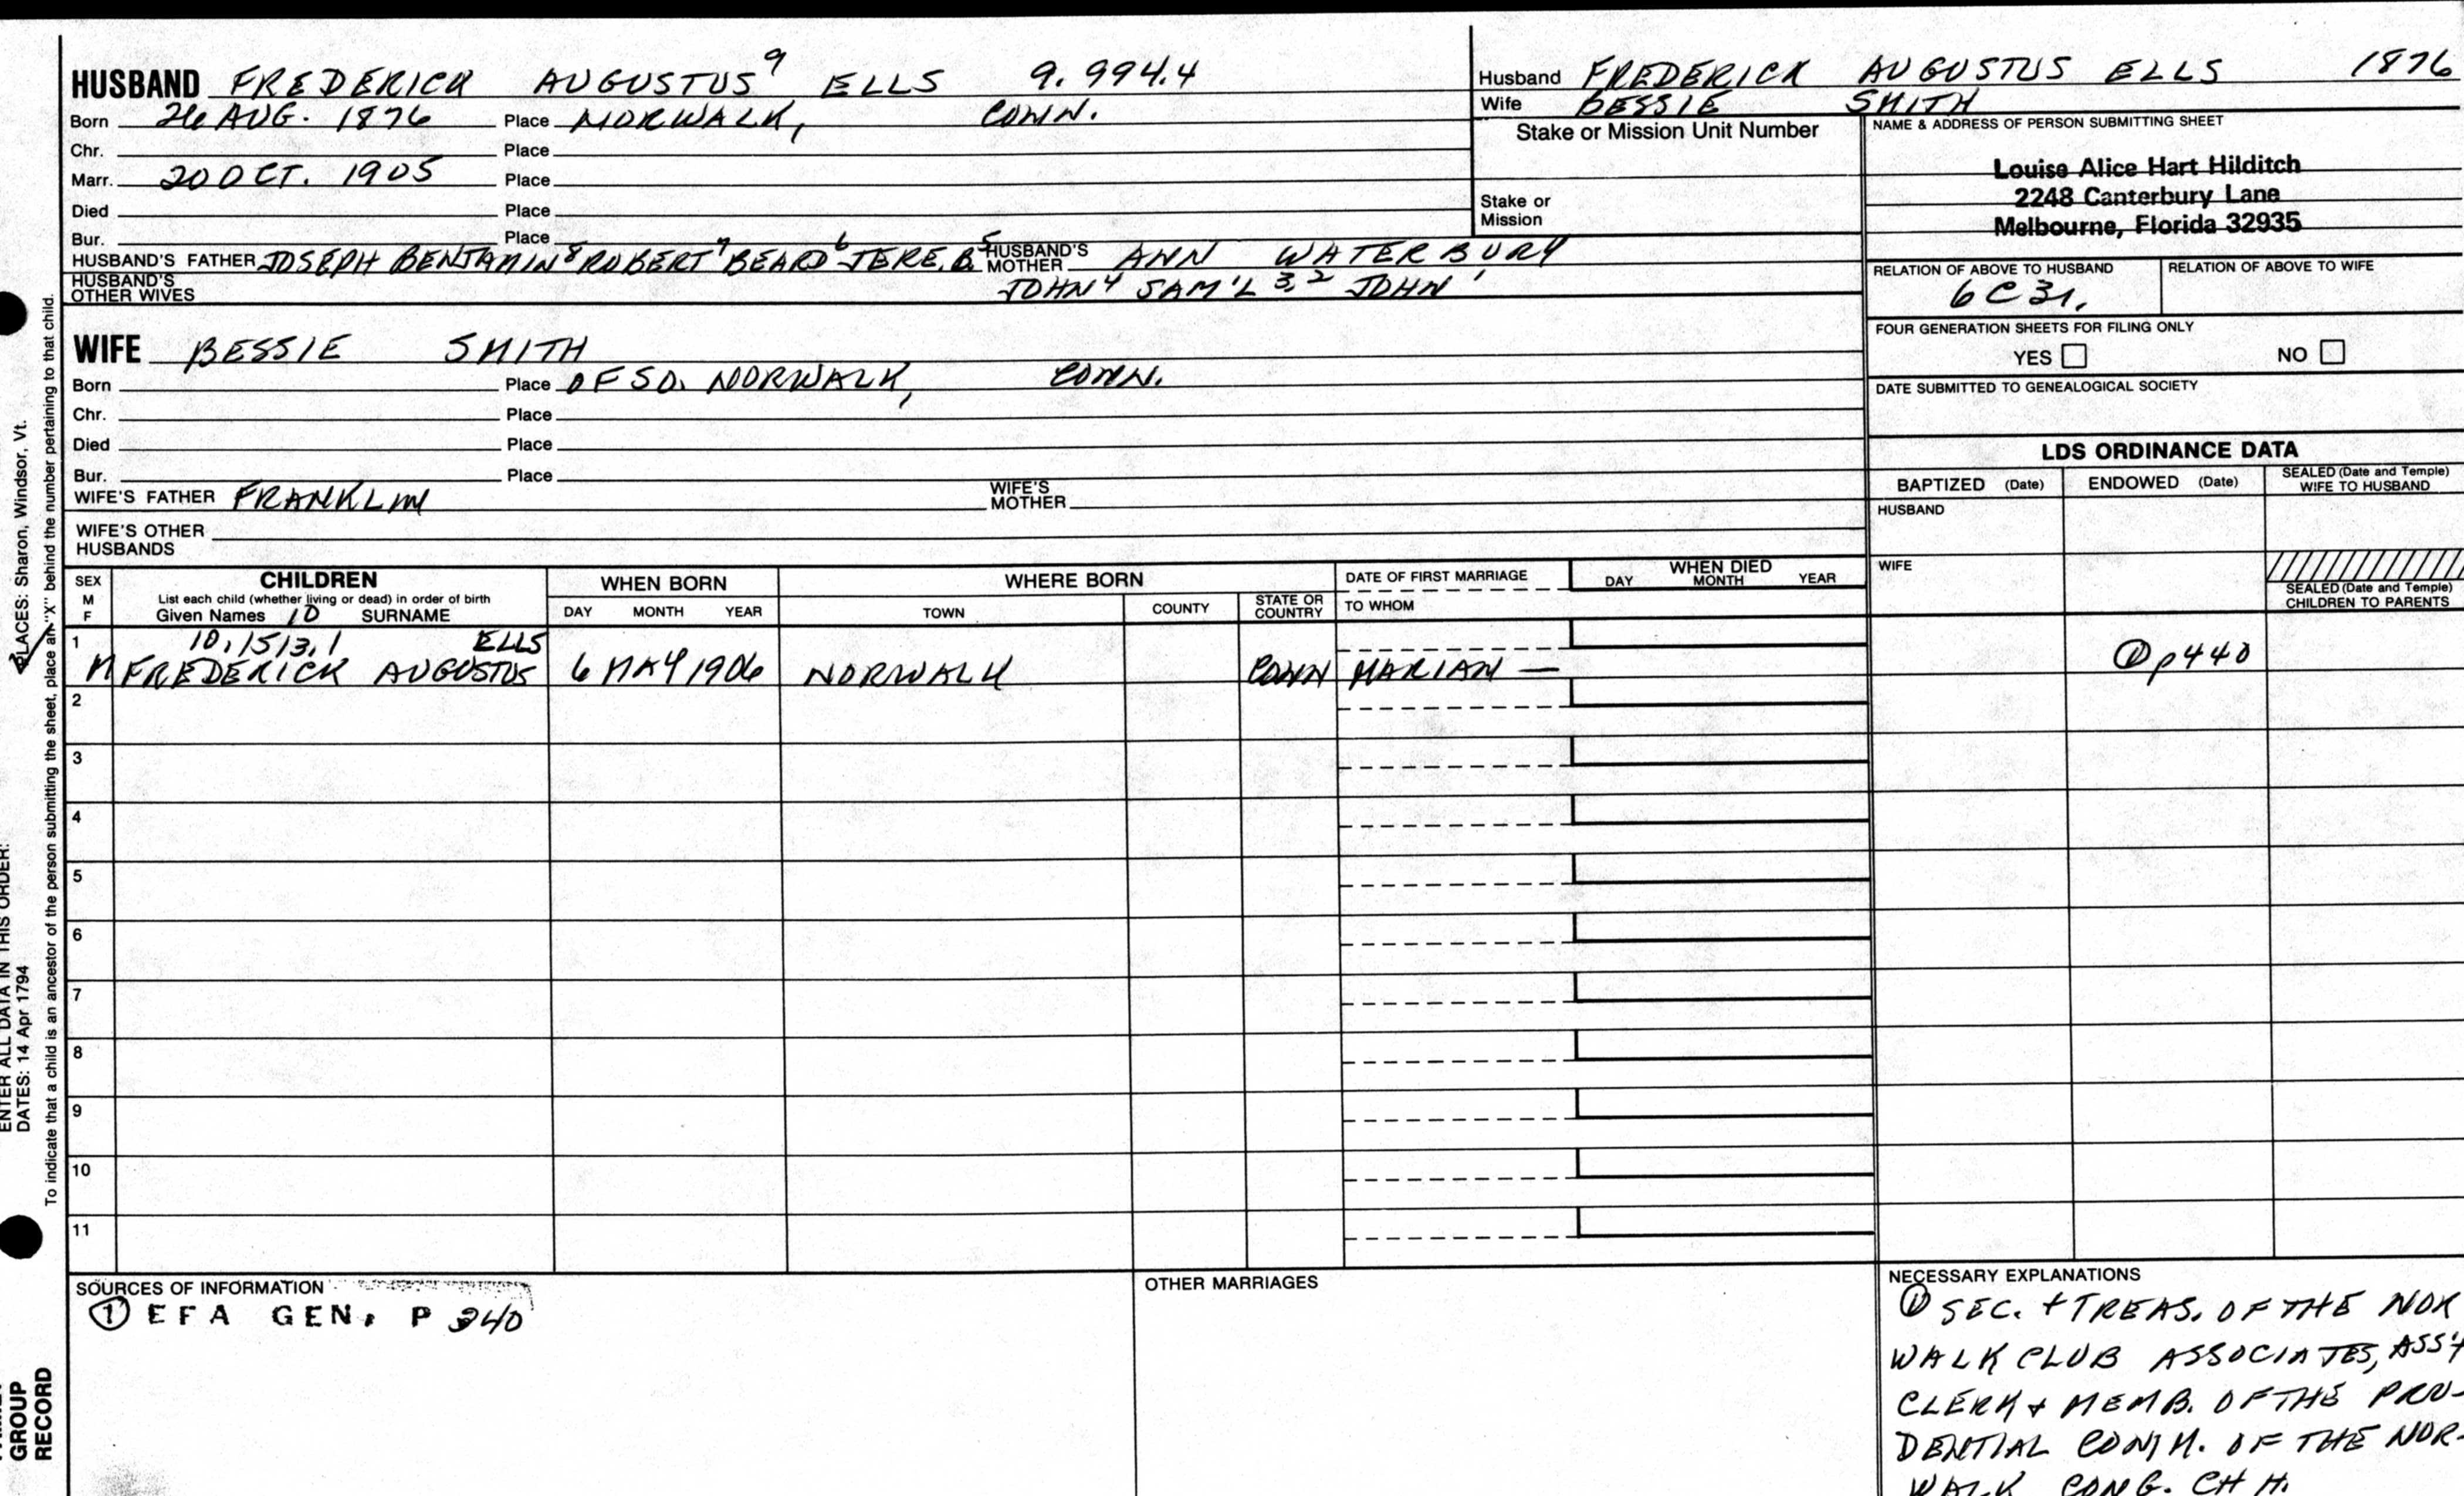 HUSBAND FREDERICK AUGUSTUS⁹ ELLS 9.994.4
Born 26 AUG. 1876 Place NORWALK, CONN.
Chr. Place
Marr. 20 OCT. 1905 Place
Died Place
Bur. Place
HUSBAND'S FATHER JOSEPH BENJAMIN⁸ ROBERT⁷ BEARD⁶ JERE. B.⁵ HUSBAND'S MOTHER ANN WATERBURY
HUSBAND'S OTHER WIVES JOHN⁴ SAM'L ³,² JOHN ¹
WIFE BESSIE SMITH
Born Place OF SO. NORWALK, CONN.
Chr. Place
Died Place
Bur. Place
WIFE'S FATHER FRANKLIN WIFE'S MOTHER
WIFE'S OTHER HUSBANDS
Husband FREDERICK AUGUSTUS ELLS 1876
Wife BESSIE SMITH
Stake or Mission Unit Number
Stake or Mission
NAME & ADDRESS OF PERSON SUBMITTING SHEET
Louise Alice Hart Hilditch
2248 Canterbury Lane
Melbourne, Florida 32935
RELATION OF ABOVE TO HUSBAND RELATION OF ABOVE TO WIFE
6C3r.
FOUR GENERATION SHEETS FOR FILING ONLY
YES NO
DATE SUBMITTED TO GENEALOGICAL SOCIETY
LDS ORDINANCE DATA
BAPTIZED (Date) ENDOWED (Date) SEALED (Date and Temple) WIFE TO HUSBAND
HUSBAND
WIFE
SEALED (Date and Temple) CHILDREN TO PARENTS
SEX M F CHILDREN WHEN BORN WHERE BORN DATE OF FIRST MARRIAGE WHEN DIED
List each child (whether living or dead) in order of birth
Given Names 10 SURNAME DAY MONTH YEAR TOWN COUNTY STATE OR COUNTRY TO WHOM DAY MONTH YEAR
1 10.1513.1 ELLS
M FREDERICK AUGUSTUS 6 MAY 1906 NORWALK CONN MARIAN — ① p440
2
3
4
5
6
7
8
9
10
11
SOURCES OF INFORMATION
① EFA GEN. P 340
OTHER MARRIAGES
NECESSARY EXPLANATIONS
① SEC. + TREAS. OF THE NOR
WALK CLUB ASSOCIATES, ASS'T
CLERK + MEMB. OF THE PRU-
DENTIAL COMM. OF THE NOR-
WALK CONG. CH H.
PLACES: Sharon, Windsor, Vt.
To indicate that a child is an ancestor of the person submitting the sheet, place an "X" behind the number pertaining to that child.
ENTER ALL DATA IN THIS ORDER:
DATES: 14 Apr 1794
GROUP
RECORD